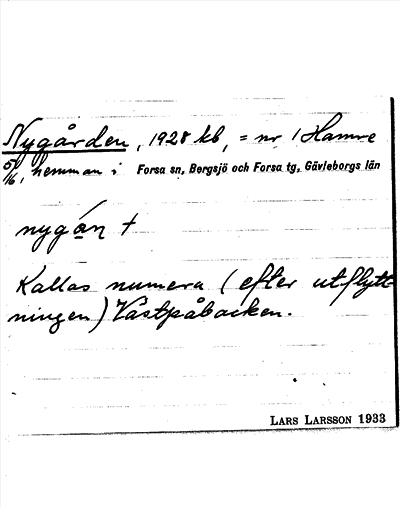 Nygården, 1928 kb, = nr 1 Hamre
5/16, hemman i Forsa sn, Bergsjö och Forsa tg, Gävleborgs län
nygánꞃ †
Kallas numera (efter utflytt-
ningen) Västpåbacken.
LARS LARSSON 1933